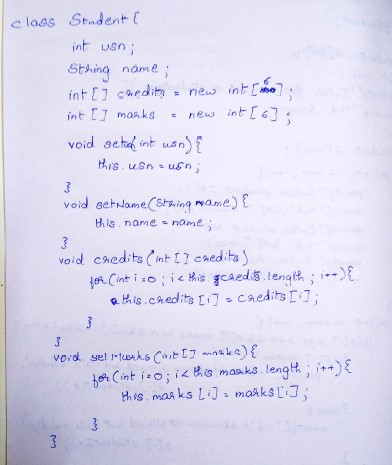 class Student {
int usn;
String name;
int [] credits = new int [6];
int [] marks = new int [6];
void set( int usn) {
this.usn = usn;
}
void setName(String name) {
this.name = name;
}
void credits (int [] credits)
for (int i=0; i < this.credits.length; i++) {
this.credits [i] = credits [i];
}
}
void setMarks (int [] marks) {
for (int i=0; i < this.marks.length; i++) {
this.marks [i] = marks [i];
}
}